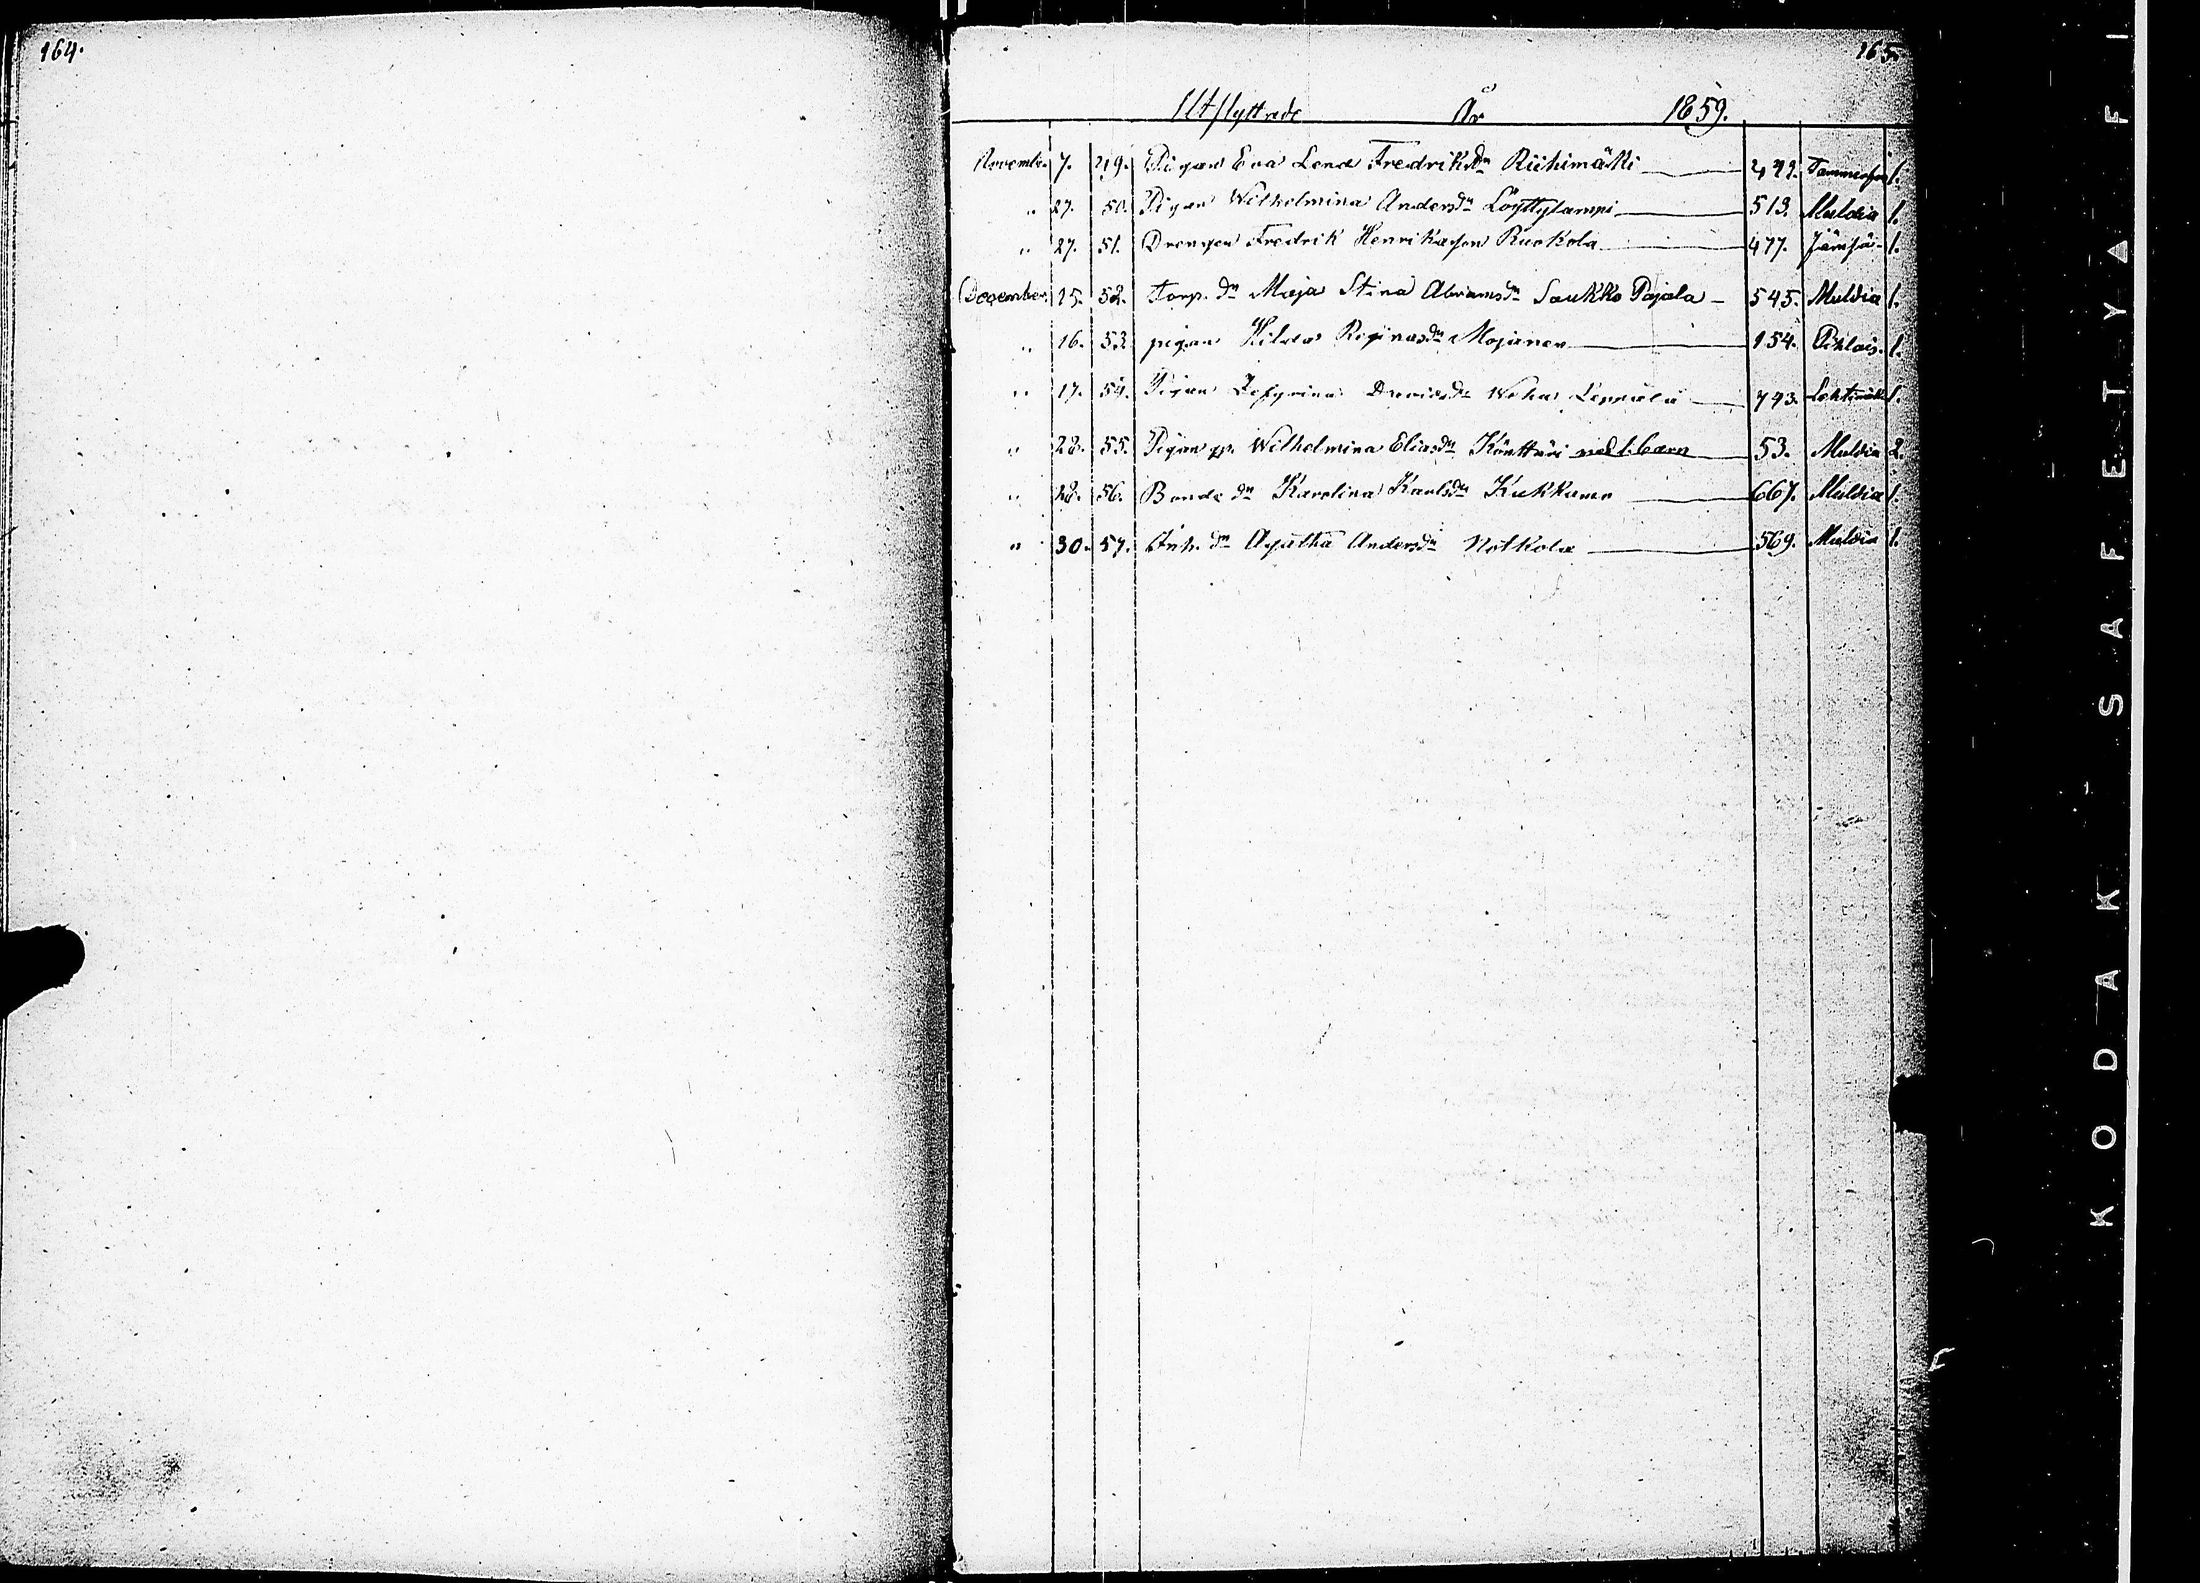 164.
165.
Utflyttade År 1859.
November 7. 49. Pigan Eva Lena Fredriksdr Riihimäki 449. Tammerfors 1.
" 27. 50. Pigan Wilhelmina Andersdr Löyttylampi 513. Muldia 1.
" 27. 51. Drengen Fredrik Henriksson Ruokola 477. Jämsä 1.
December 15. 52. Torp. dr Maja Stina Abramsdr Saukko Pajala 545. Muldia 1.
" 16. 53. pigan Hilda Reginasdr Mojanen 154. Pihlais. 1.
" 17. 54. Pigan Zefyrina Davidsdr Weha 743. 1.
" 28. 55. Pigan Wilhelmina Eliasdr Könttäri med 1. barn 53. Muldia 2.
" 28. 56. Bonde dr Karolina Karlsdr 667. Muldia 1.
" 30. 57. Inh. dr Agatha Andersdr Notkola 569. Muldia 1.
KODAK SAFETY FI